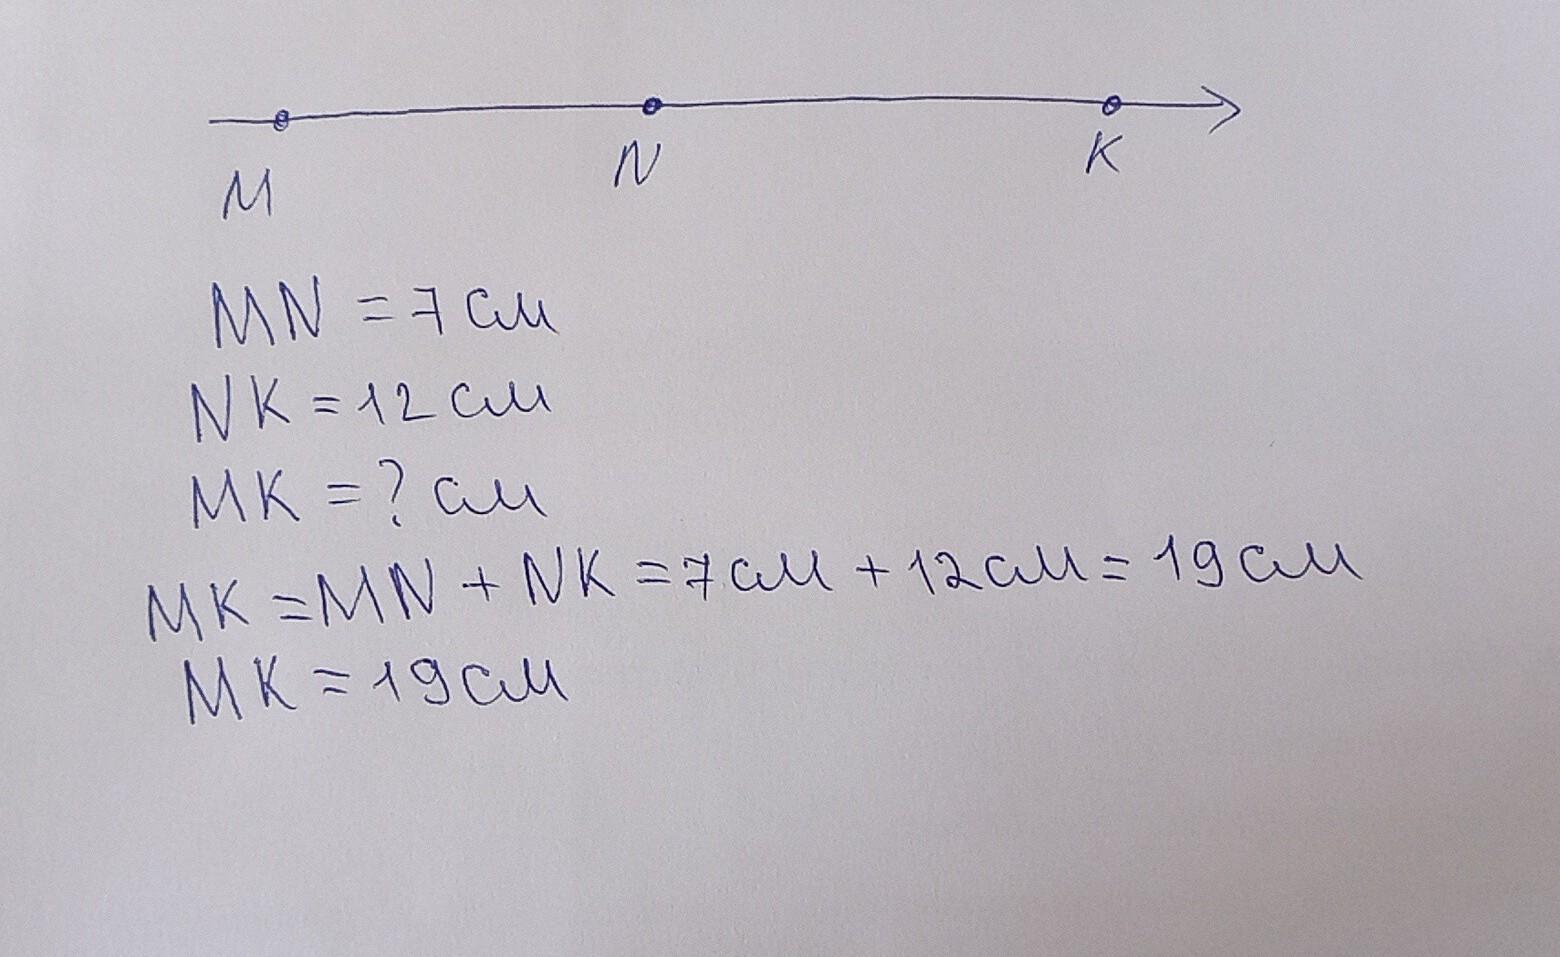 M N K
MN = 7 см
NK = 12 см
MK = ? см
MK = MN + NK = 7 см + 12 см = 19 см
MK = 19 см